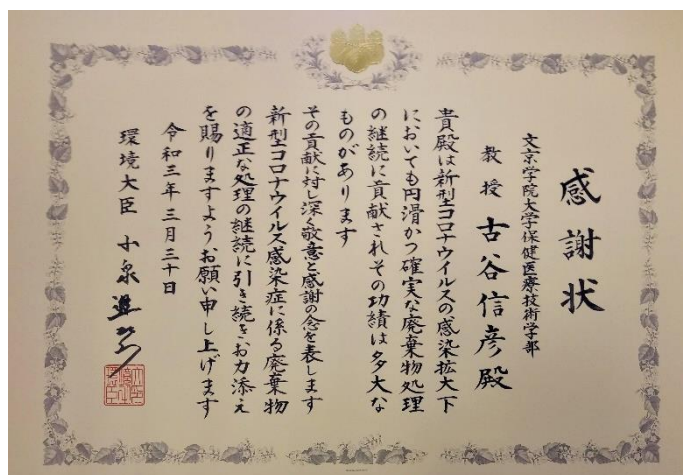 感謝状
文京学院大学保健医療技術学部
教授 古谷信彦殿
貴殿は新型コロナウイルスの感染拡大下
においても円滑かつ確実な廃棄物処理
の継続に貢献されその功績は多大な
ものがあります
その貢献に対し深く敬意と感謝の念を表します
新型コロナウイルス感染症に係る廃棄物
の適正な処理の継続に引き続きお力添え
を賜りますようお願い申し上げます
令和三年三月三十日
環境大臣 小泉進次郎